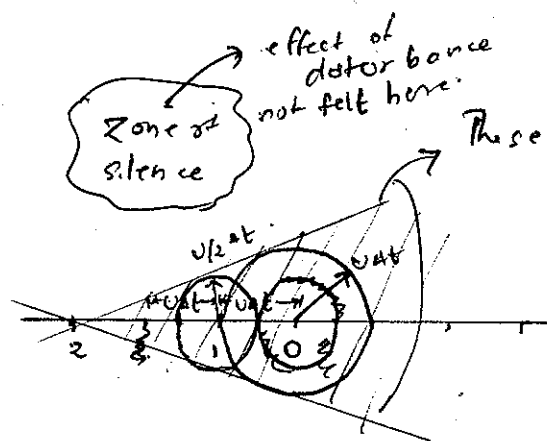 effect of
distor bance
not felt here.
Zone of
silence
These
U/2 Δt
UΔt
UΔt
UΔt
2
1
0